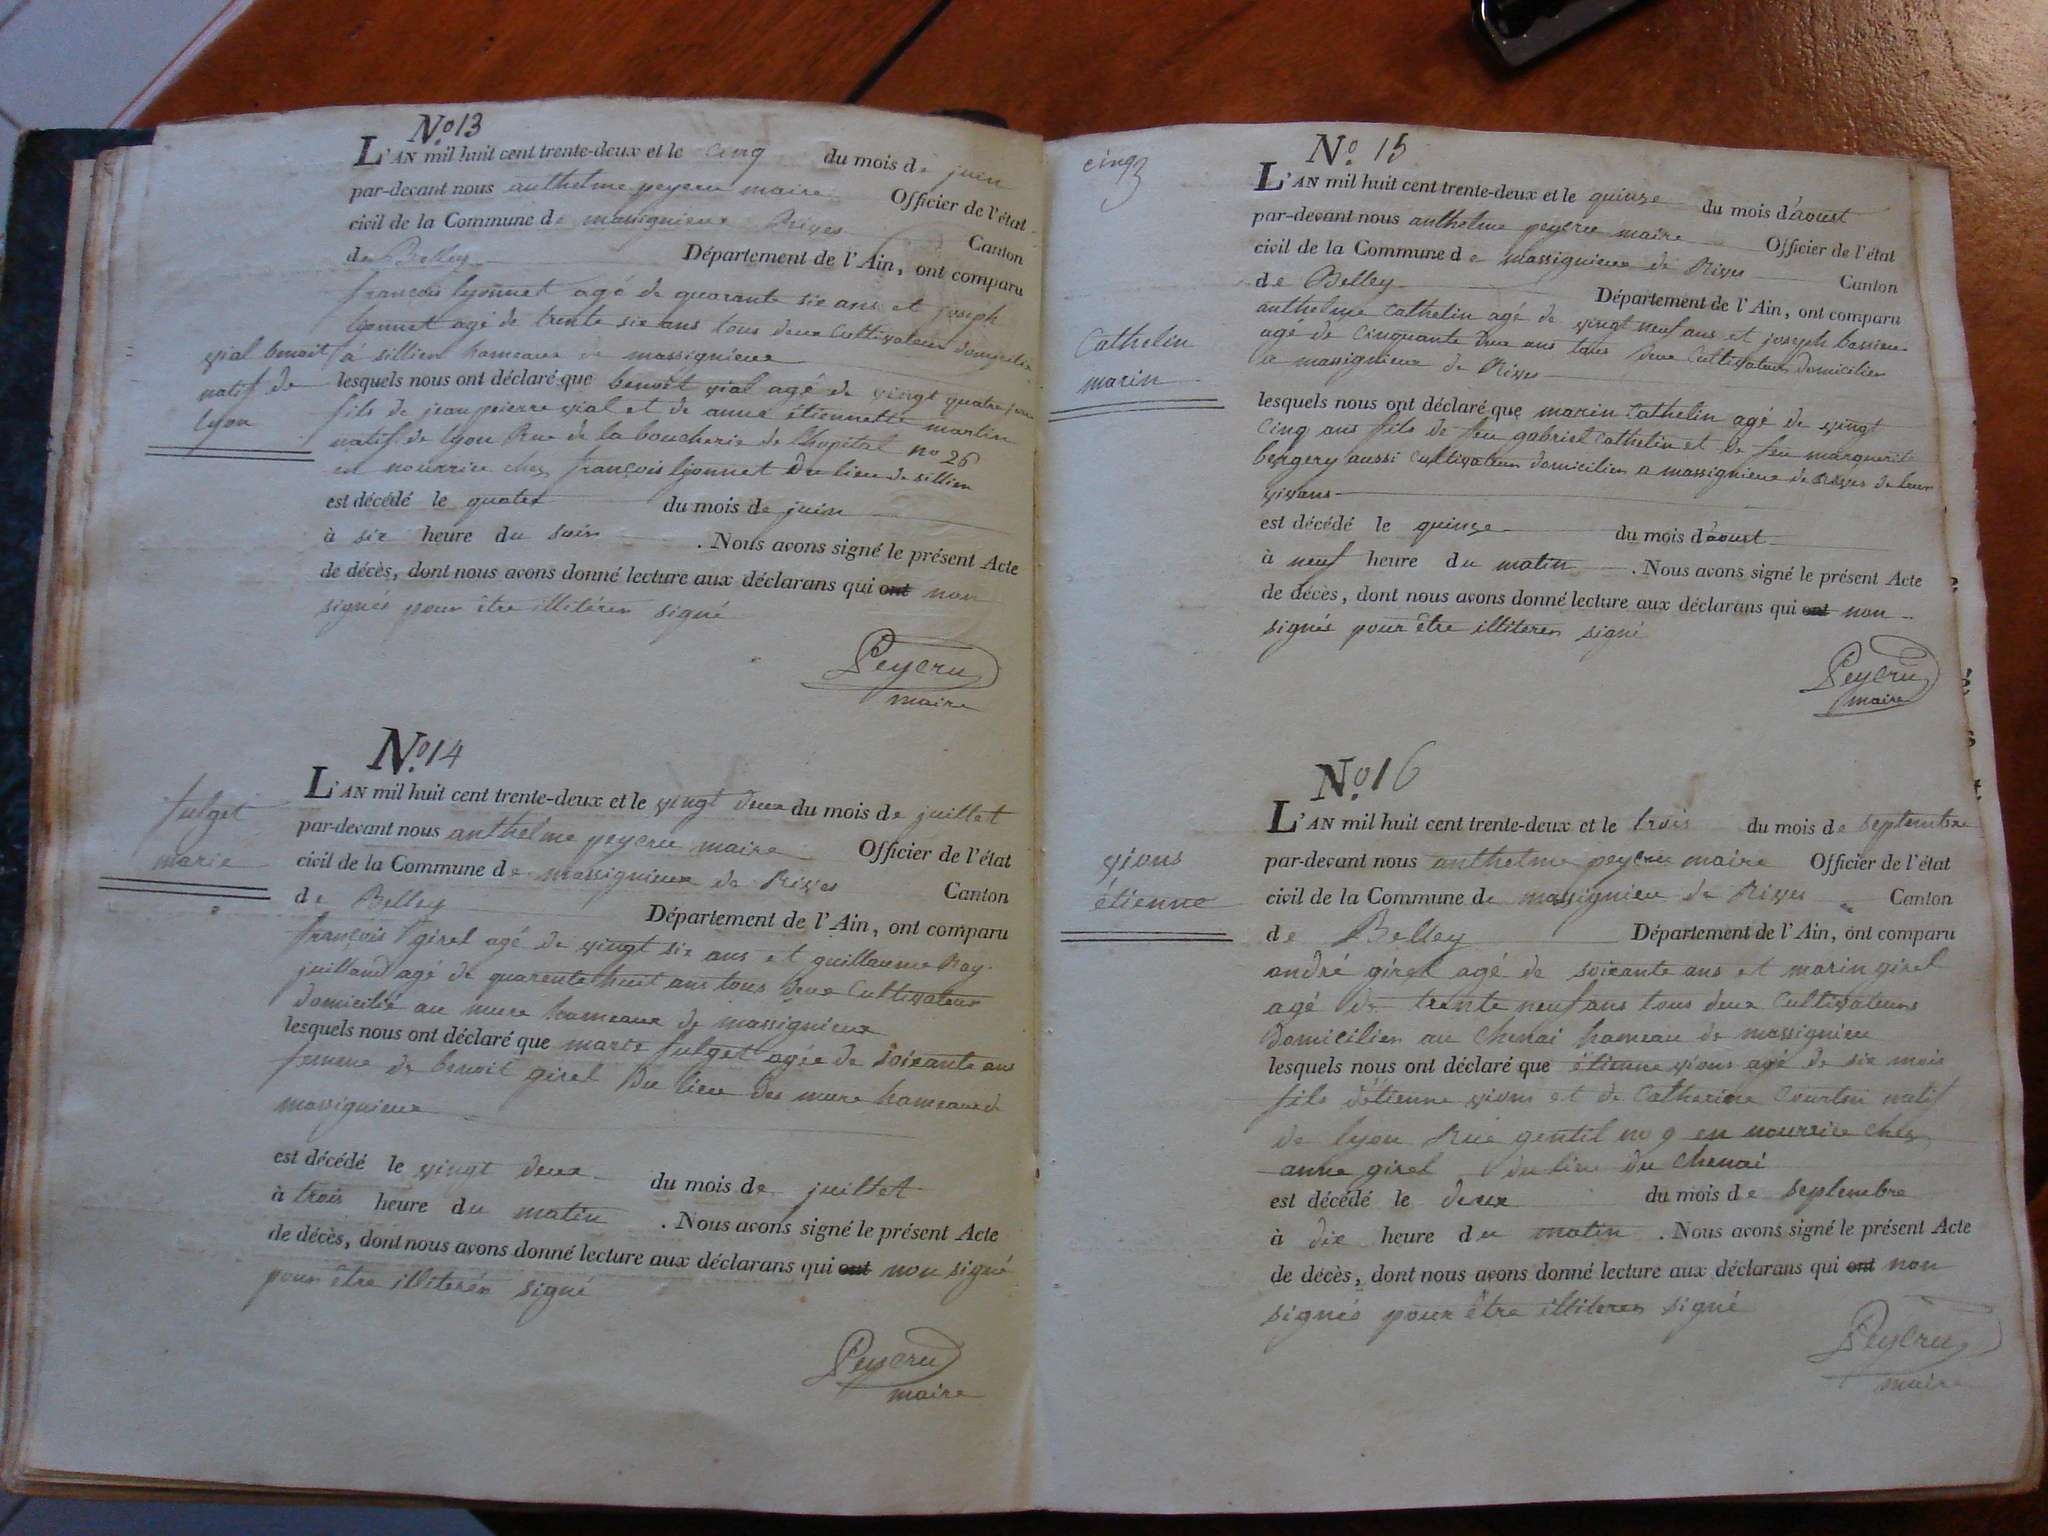 N.º 13
L'AN mil huit cent trente-deux et le cinq du mois de juin
par-devant nous anthelme peycru maire Officier de l'état
civil de la Commune de massignieux Rives Canton
de Belley Département de l'Ain, ont comparu
françois lyonnet age de quarante six ans et joseph
lyonnet agé de trente six ans tous deux Cultivateur domicilie
à sillien hameaux de massignieux
vial benoit
natif de
lyon
lesquels nous ont déclaré que benoit vial agé de vingt quatre jour
fils de jean peierre vial et de anne étiennette martin
natif de lyon Rue de la boucherie de l'hopital no 26
en nourrice chez françois lyonnet du lieu de sillien
est décédé le quatre du mois de juin
à six heure du soir . Nous avons signé le présent Acte
de décès, dont nous avons donné lecture aux déclarans qui ont non
signés pour être illitéren signé
Peycru
maire
N.º 14
fulget
marie
L'AN mil huit cent trente-deux et le vingt deux du mois de juillet
par-devant nous anthelme peycru maire Officier de l'état
civil de la Commune de massignieux de Rives Canton
de Belley Département de l'Ain, ont comparu
françois girel agé de vingt six ans et guillaume Ray
juilland agé de quarente huit ans tous deux Cultivateur
domicilié au mure hameaux de massignieux
lesquels nous ont déclaré que marie fulget agée de soixante ans
femme de benoit girel du lieu des mure hameaux de
massignieux
est décédé le vingt deux du mois de juillet
à trois heure du matin . Nous avons signé le présent Acte
de décès, dont nous avons donné lecture aux déclarans qui ont non signé
pour être illiterén signé
Peycru
maire
cinq
N.º 15
L'AN mil huit cent trente-deux et le quinze du mois d'aoust
par-devant nous anthelme peycru maire Officier de l'état
civil de la Commune de massignieux de Rives Canton
de Belley Département de l'Ain, ont comparu
anthelme Cathelin agé de vingt neuf ans et joseph
agé de cinquante deux ans tous deux Cultivateur domicilien
a massignieux de Rives
Cathelin
marin
lesquels nous ont déclaré que marin Cathelin agé de vingt
cinq ans fils de feu gabriel Cathelin et de feu marguerite
bergery aussi Cultivateur domicilien a massignieux de Rives de leur
vivans
est décédé le quinze du mois d'aoust
à neuf heure du matin . Nous avons signé le présent Acte
de décès, dont nous avons donné lecture aux déclarans qui ont non
signés pour être illiteren signé
Peycru
maire
N.º 16
vions
étienne
L'AN mil huit cent trente-deux et le trois du mois de septembre
par-devant nous anthelme peycru maire Officier de l'état
civil de la Commune de massignieu de Rives Canton
de Belley Département de l'Ain, ont comparu
andré girel agé de soixante ans et marin girel
agé de trente neuf ans tous deux Cultivateurs
domicilien au Chenai hameau de massignieu
lesquels nous ont déclaré que étienne vions agé de six mois
fils détienne vions et de Catherine Courtin natif
de lyon Rue gentil no 9 en nourrice chez
anne girel du lieu du Chenai
est décédé le deux du mois de septembre
à dix heure du matin . Nous avons signé le présent Acte
de décès, dont nous avons donné lecture aux déclarans qui ont non
signés pour être illiteren signé
Peycru
maire